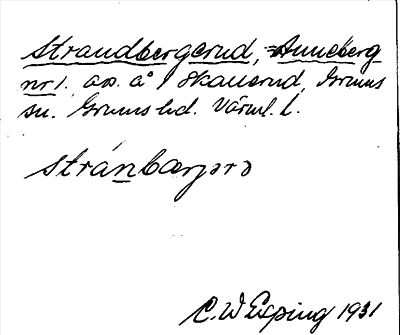 Strandbergerud, =Anneberg
nr 1. av. å Skauerud, Grums
sn. Grums hd. Värml. l.
stránbærjərə
C. W Esping 1931